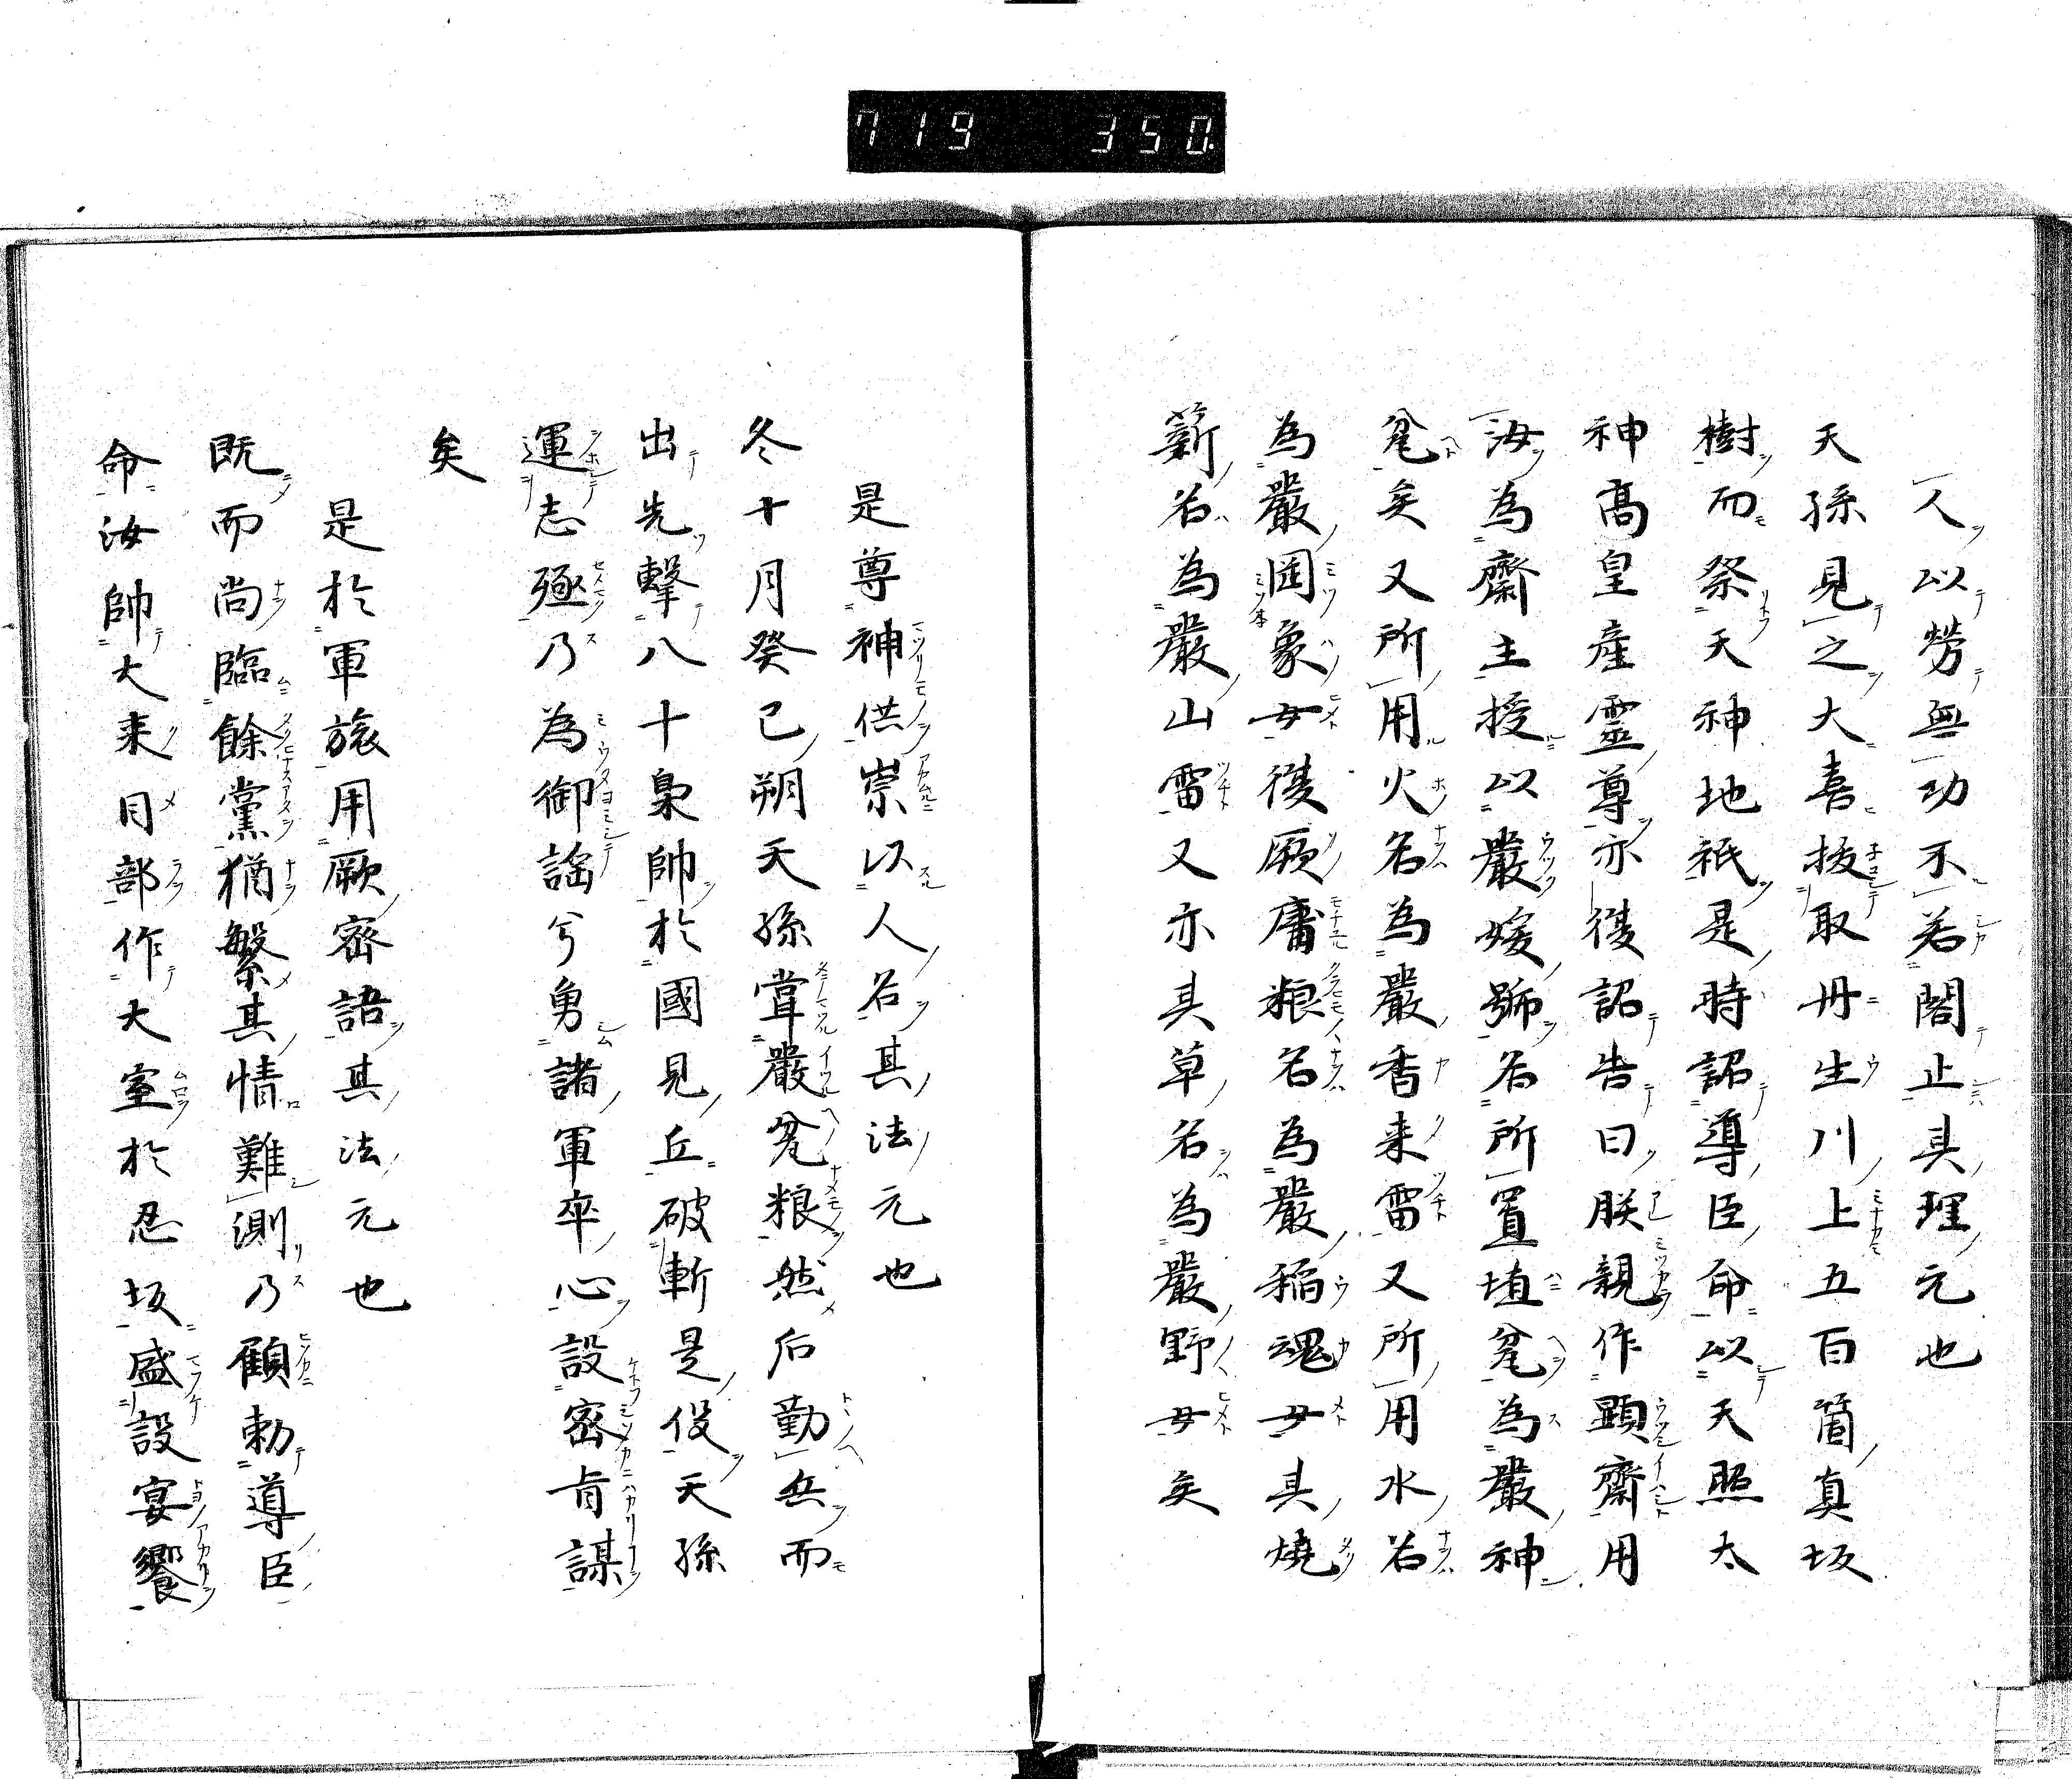 719 350
人以勞無功不若閣止具理元也
天孫見之大喜拔取丹生川上五百箇真坂
樹而祭天神地祇是時詔導臣命以天照太
神髙皇産霊尊亦復詔告曰朕親作顕齋用
汝為齋主授以嚴媛號名所置埴瓮為嚴神
瓮矣又所用火名為嚴香来雷又所用水名
為嚴罔象女復厥庸粮名為嚴稲魂女具燒
薪名為嚴山雷又亦具草名為嚴野女矣
是尊神供崇以人名其法元也
冬十月癸已朔天孫甞嚴瓮粮然后勤兵而
出先撃八十梟帥於國見丘破斬是役天孫
運志極乃為御謡兮勇諸軍卒心設密肯謀
矣
是於軍旅用厥密語其法元也
既而尚臨餘黨猶繁其情難測乃顧勅導臣
命汝帥大来目部作大室於忍坂盛設宴饗